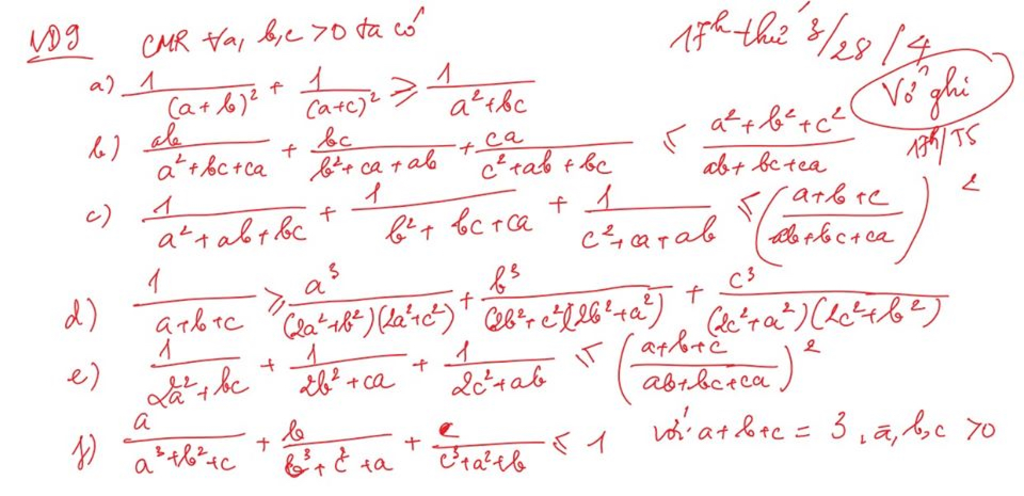 VD9 CMR ∀a, b, c > 0 ta có 17h thứ 3/28/4
a) 1/(a+b)² + 1/(a+c)² ≥ 1/(a²+bc) Vở ghi
b) ab/(a²+bc+ca) + bc/(b²+ca+ab) + ca/(c²+ab+bc) ≤ (a²+b²+c²)/(ab+bc+ca) 17h/T5
c) 1/(a²+ab+bc) + 1/(b²+bc+ca) + 1/(c²+ca+ab) ≤ ((a+b+c)/(ab+bc+ca))²
d) 1/(a+b+c) ≥ a³/((2a²+b²)(2a²+c²)) + b³/((2b²+c²)(2b²+a²)) + c³/((2c²+a²)(2c²+b²))
e) 1/(2a²+bc) + 1/(2b²+ca) + 1/(2c²+ab) ≤ ((a+b+c)/(ab+bc+ca))²
f) a/(a³+b²+c) + b/(b³+c²+a) + c/(c³+a²+b) ≤ 1 với a+b+c = 3, a, b, c > 0